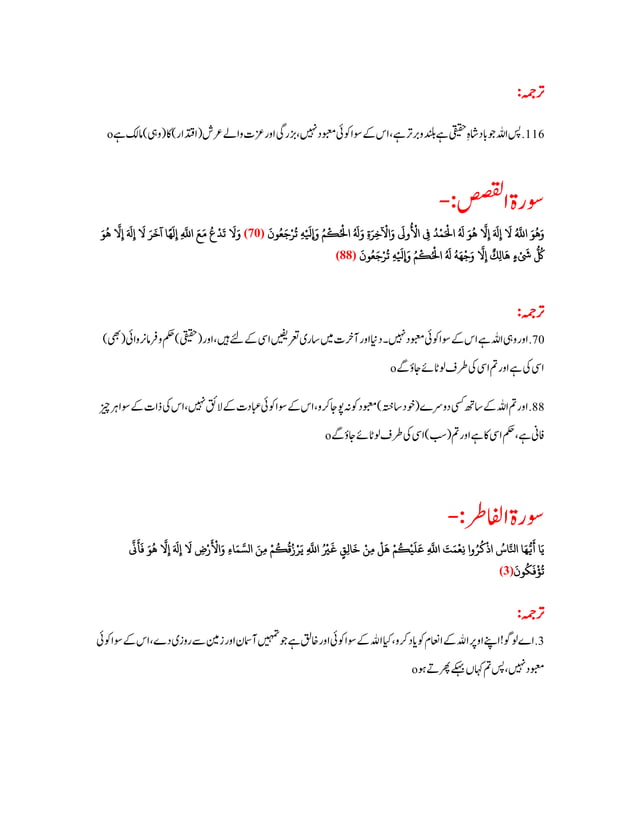 ترجمہ:
116. پس اللہ جو بادشاہِ حقیقی ہے بلند و برتر ہے، اس کے سوا کوئی معبود نہیں، بزرگی اور عزت والے عرش (اقتدار) کا (وہی) مالک ہے o
سورۃ القصص :-
وَهُوَ اللَّهُ لَا إِلَهَ إِلَّا هُوَ لَهُ الْحَمْدُ فِي الْأُولَى وَالْآخِرَةِ وَلَهُ الْحُكْمُ وَإِلَيْهِ تُرْجَعُونَ (70) وَلَا تَدْعُ مَعَ اللَّهِ إِلَهًا آخَرَ لَا إِلَهَ إِلَّا هُوَ
كُلُّ شَيْءٍ هَالِكٌ إِلَّا وَجْهَهُ لَهُ الْحُكْمُ وَإِلَيْهِ تُرْجَعُونَ (88)
ترجمہ:
70. اور وہی اللہ ہے اس کے سوا کوئی معبود نہیں۔ دنیا اور آخرت میں ساری تعریفیں اسی کے لئے ہیں، اور (حقیقی) حکم و فرمانروائی (بھی)
اسی کی ہے اور تم اسی کی طرف لوٹائے جاؤ گے o
88. اور تم اللہ کے ساتھ کسی دوسرے (خود ساختہ) معبود کو نہ پوجا کرو، اس کے سوا کوئی عبادت کے لائق نہیں، اس کی ذات کے سوا ہر چیز
فانی ہے، حکم اسی کا ہے اور تم (سب) اسی کی طرف لوٹائے جاؤ گے o
سورۃ الفاطر :-
يَا أَيُّهَا النَّاسُ اذْكُرُوا نِعْمَتَ اللَّهِ عَلَيْكُمْ هَلْ مِنْ خَالِقٍ غَيْرُ اللَّهِ يَرْزُقُكُمْ مِنَ السَّمَاءِ وَالْأَرْضِ لَا إِلَهَ إِلَّا هُوَ فَأَنَّى
تُؤْفَكُونَ(3)
ترجمہ:
3. اے لوگو! اپنے اوپر اللہ کے انعام کو یاد کرو، کیا اللہ کے سوا کوئی اور خالق ہے جو تمہیں آسمان اور زمین سے روزی دے، اس کے سوا کوئی
معبود نہیں، پس تم کہاں بہکے پھرتے ہو o